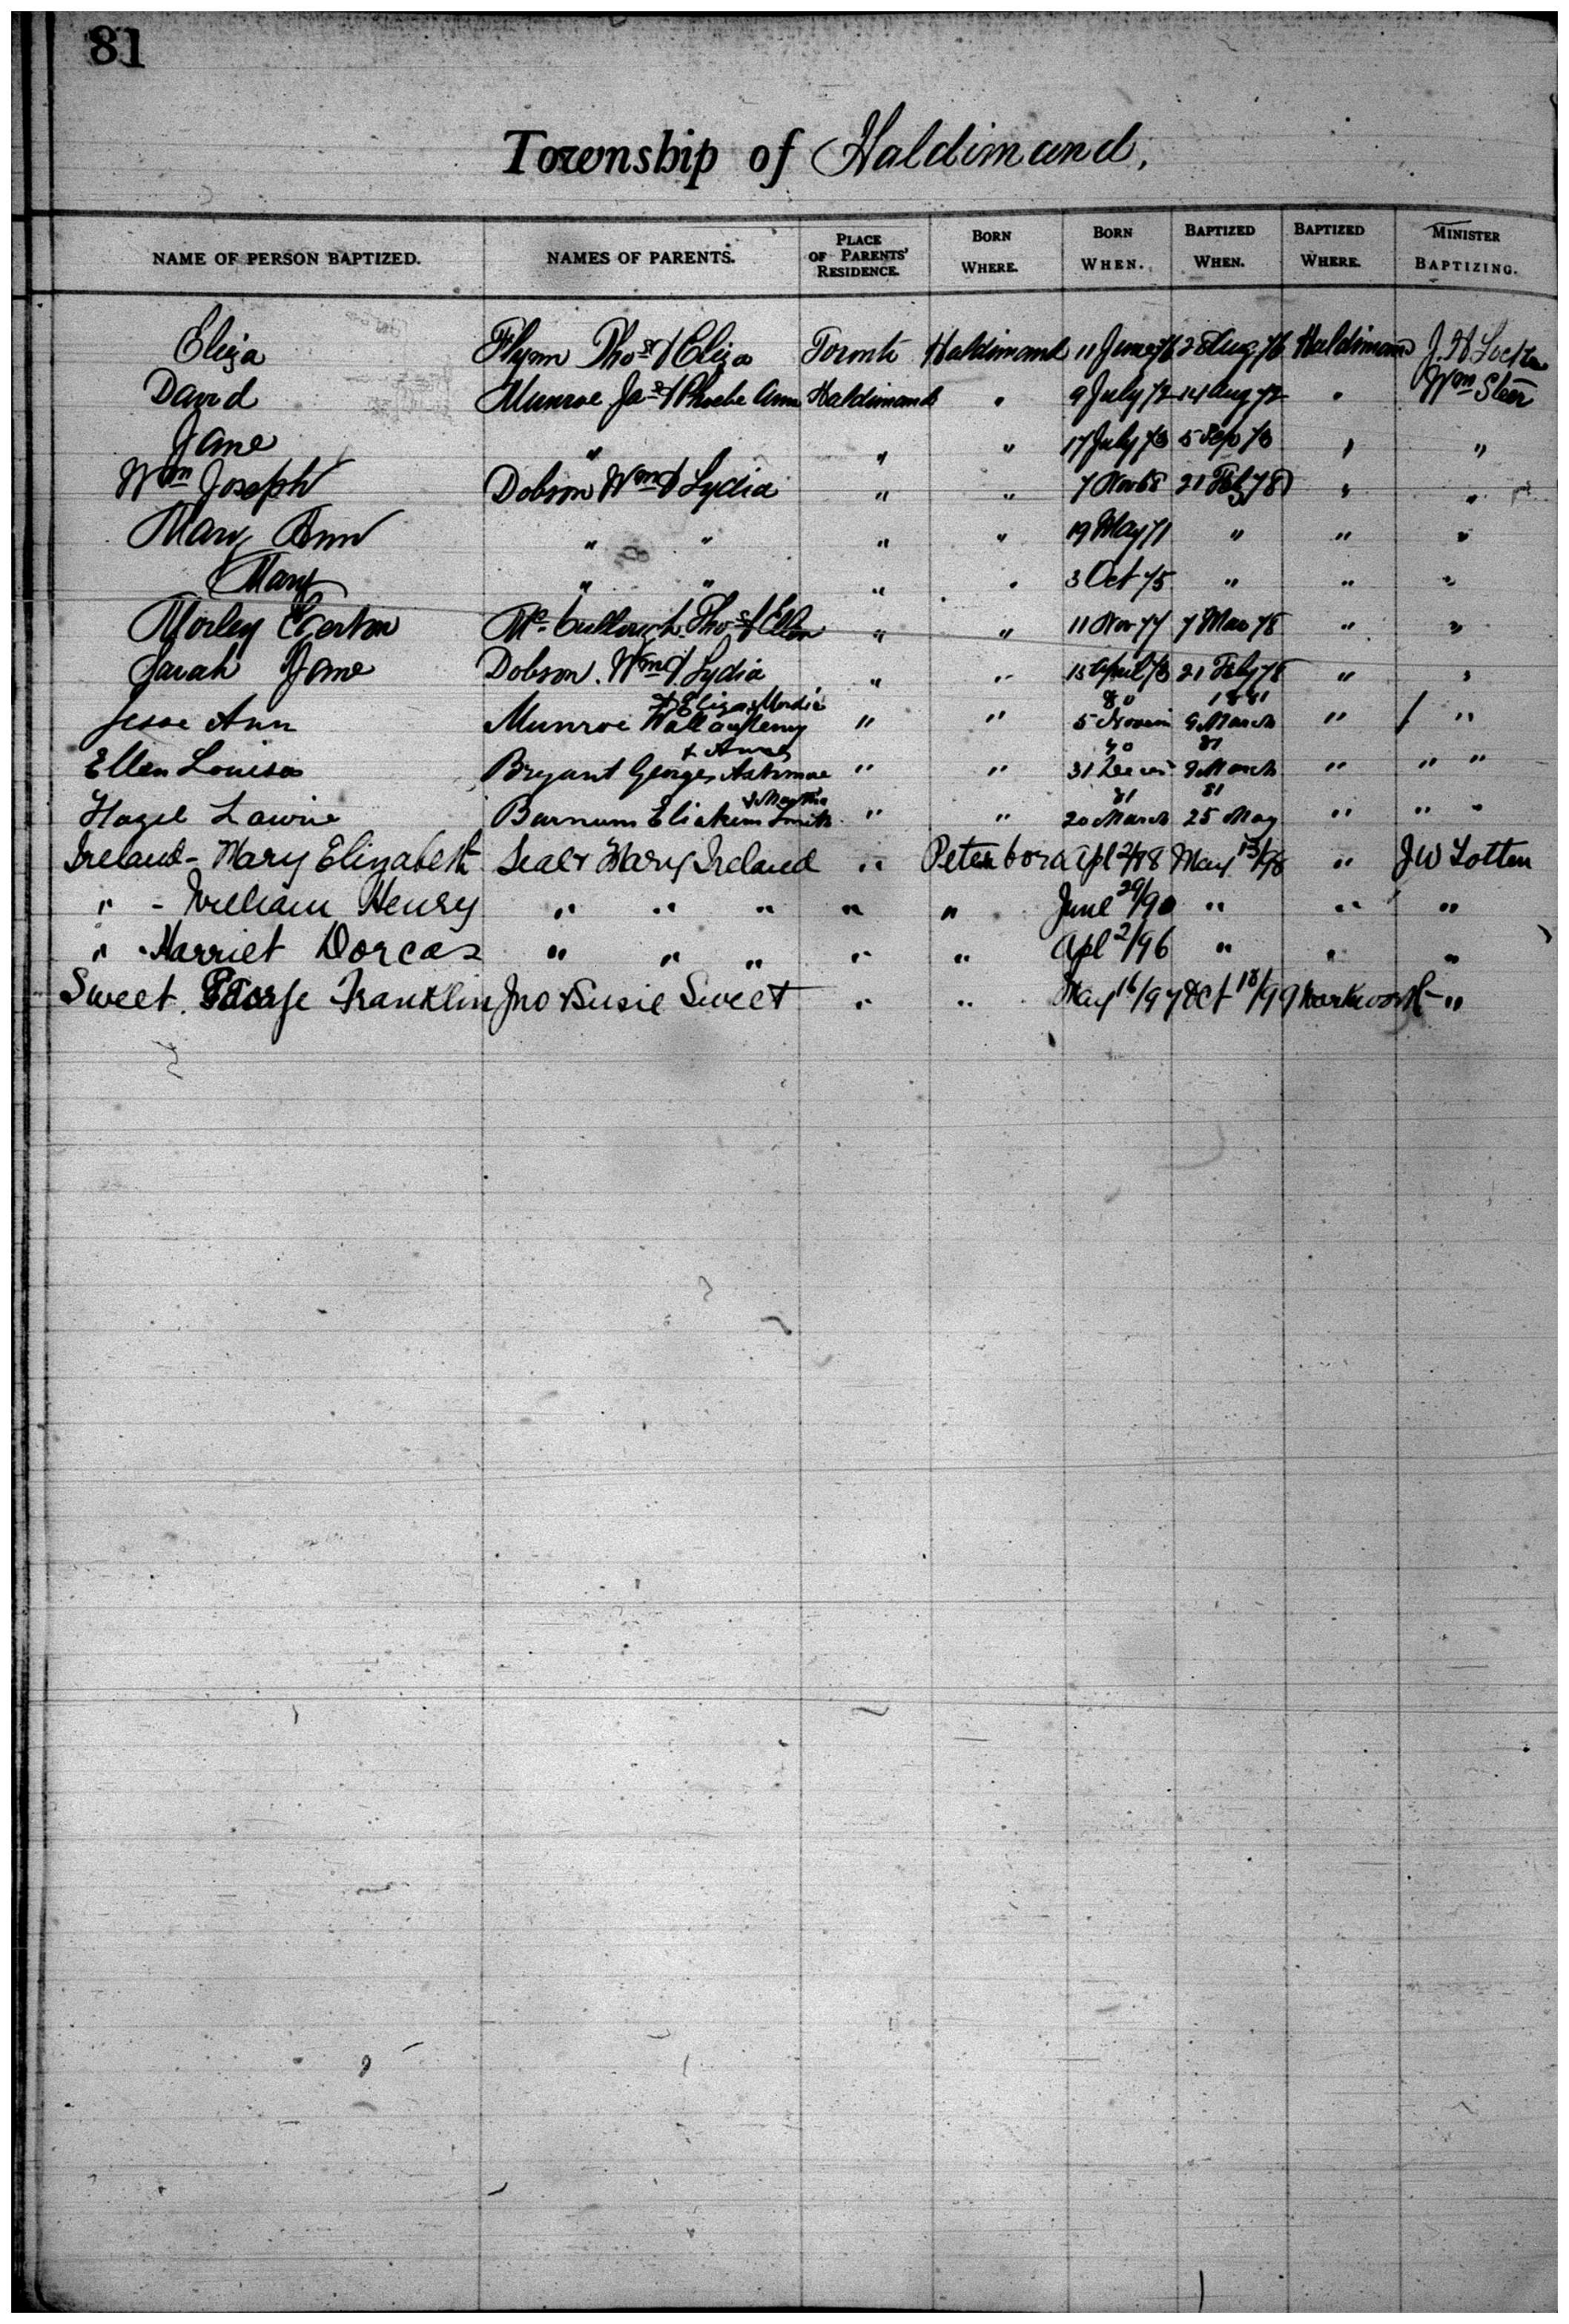 81
Township of Haldimand,
NAME OF PERSON BAPTIZED. NAMES OF PARENTS. PLACE OF PARENTS' RESIDENCE. BORN WHERE. BORN WHEN. BAPTIZED WHEN. BAPTIZED WHERE. MINISTER BAPTIZING.
Eliza Flynn Thos & Eliza Toronto Haldimand 11 June 76 28 Aug 76 Haldimand J. H.
David Munroe Jas & Phoebe Ann Haldimand " 9 July 72 14 Aug 72 " Wm Steer
Jane " " " 17 July 73 5 Sep 73 " "
Wm Joseph Dobson Wm & Lydia " " 7 Nov 68 21 Feby 78 " "
Mary Ann " " " " 19 May 71 " " "
Mary " " " " 3 Oct 75 " " "
Morley Egerton McCullough Thos & Ellen " " 11 Nov 77 7 Mar 78 " "
Sarah Jane Dobson. Wm & Lydia " " 15 April 73 21 Feby 78 " "
& Eliza 80 1881
Jesse Ann Munroe " " 5 9 March " "
& 81
Ellen Louisa Bryant George " " 31 9 March " " "
& Martha 81 81
Hazel Burnum Eliakim Smith " " 20 March 25 May " " "
Ireland - Mary Elizabeth & Mary Ireland " Peterboro Apl 2/88 May 15/98 " J W Totten
" - William Henry " " " " " June 29/90 " " "
" - Harriet Dorcas " " " " " Apl 2/96 " " "
Sweet. George Franklin Jno & Susie Sweet " " May 16/97 Oct 18/99 Warkworth "